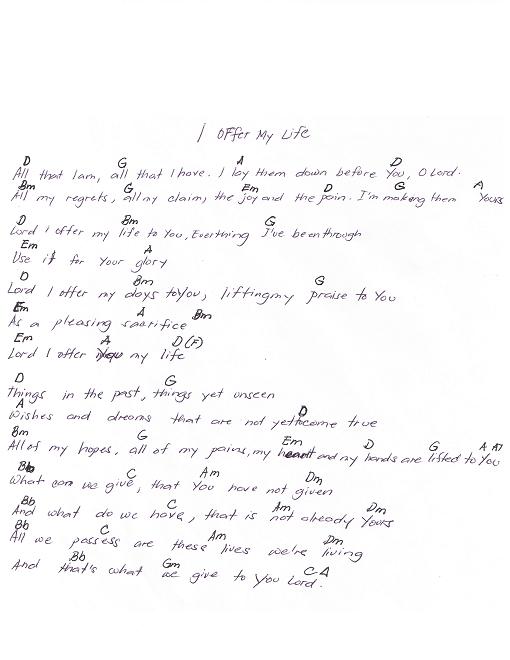 I Offer My Life
D G A D
All that I am, all that I have. I lay them down before You, O Lord.
Bm G Em D G A
All my regrets, all my claim, the joy and the pain. I'm making them Yours
D Bm G
Lord I offer my life to You, Everthing I've been through
Em A
Use it for Your glory
D Bm G
Lord I offer my days to You, lifting my praise to You
Em A Bm
As a pleasing sacrifice
Em A D(F)
Lord I offer my life
D G
Things in the past, things yet unseen
A D
Wishes and dreams that are not yet come true
Bm G Em D G A A7
All of my hopes, all of my pains, my heart and my hands are lifted to You
Bb C Am Dm
What can we give, that You have not given
Bb C Am Dm
And what do we have, that is not already Yours
Bb C Am Dm
All we possess are these lives we're living
Bb Gm C-A
And that's what we give to You Lord.